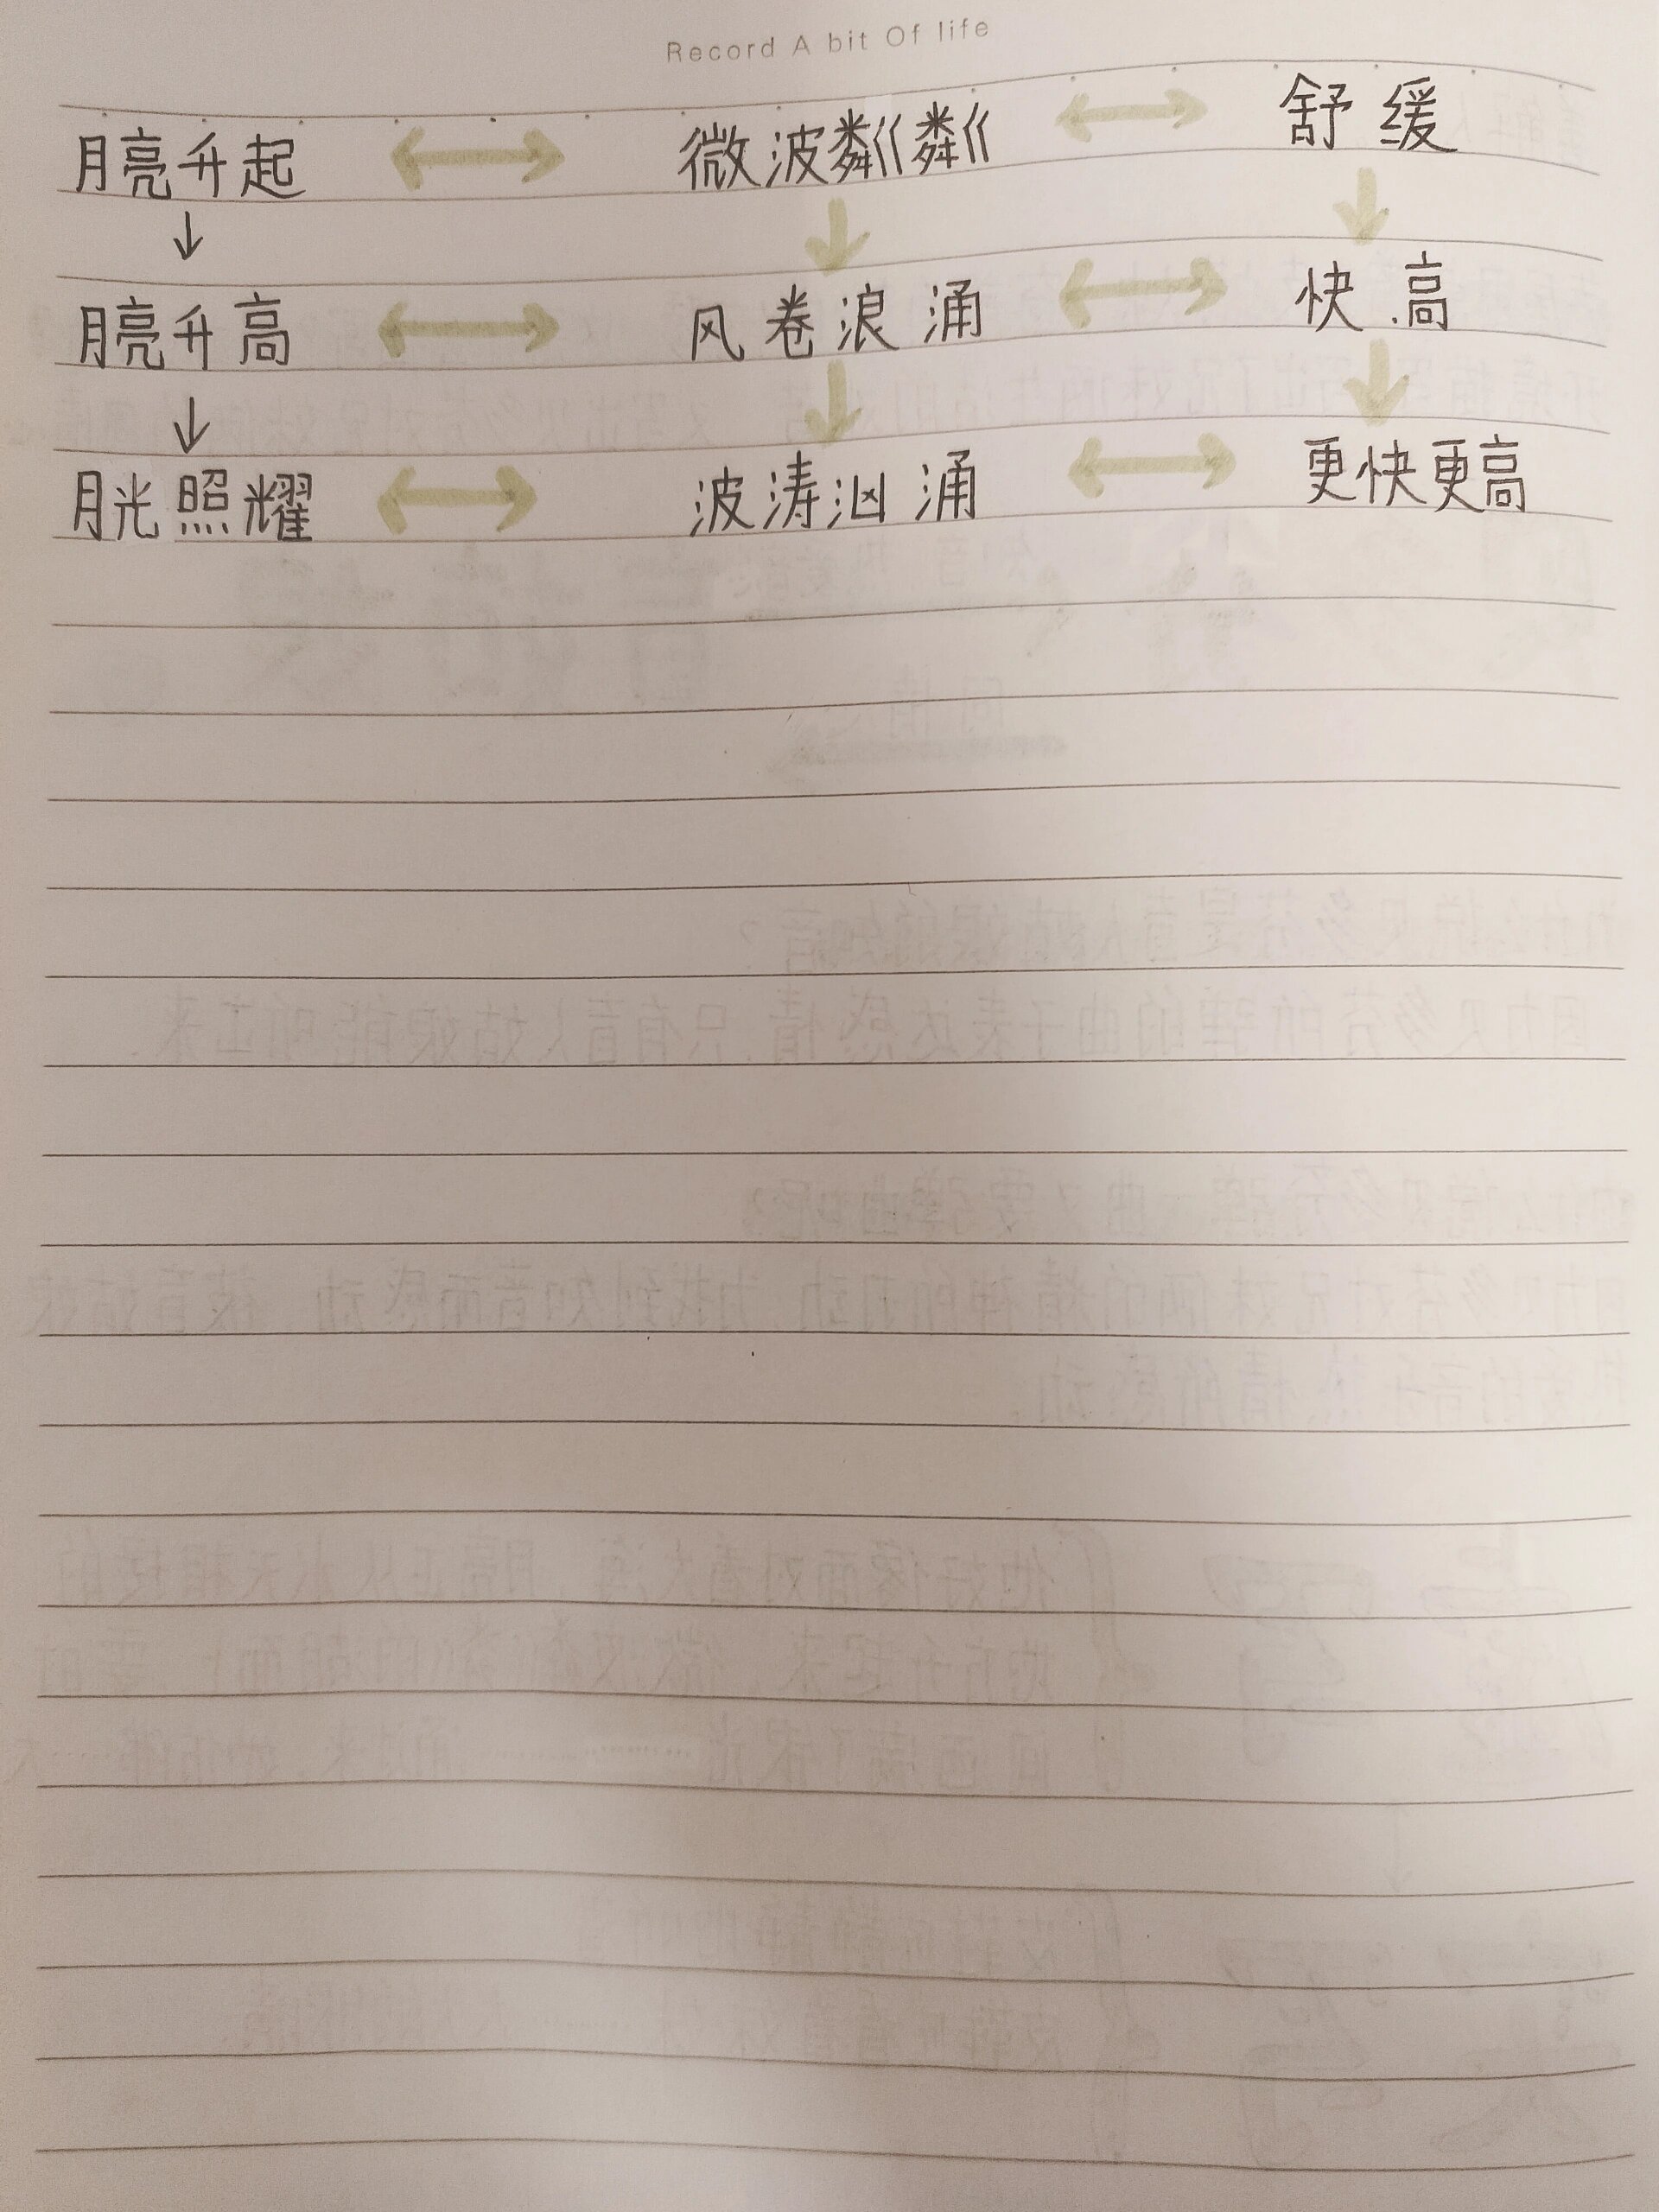 Record A bit Of life
月亮升起 ↔ 微波粼粼 ↔ 舒缓
↓ ↓ ↓
月亮升高 ↔ 风卷浪涌 ↔ 快.高
↓ ↓ ↓
月光照耀 ↔ 波涛汹涌 ↔ 更快更高